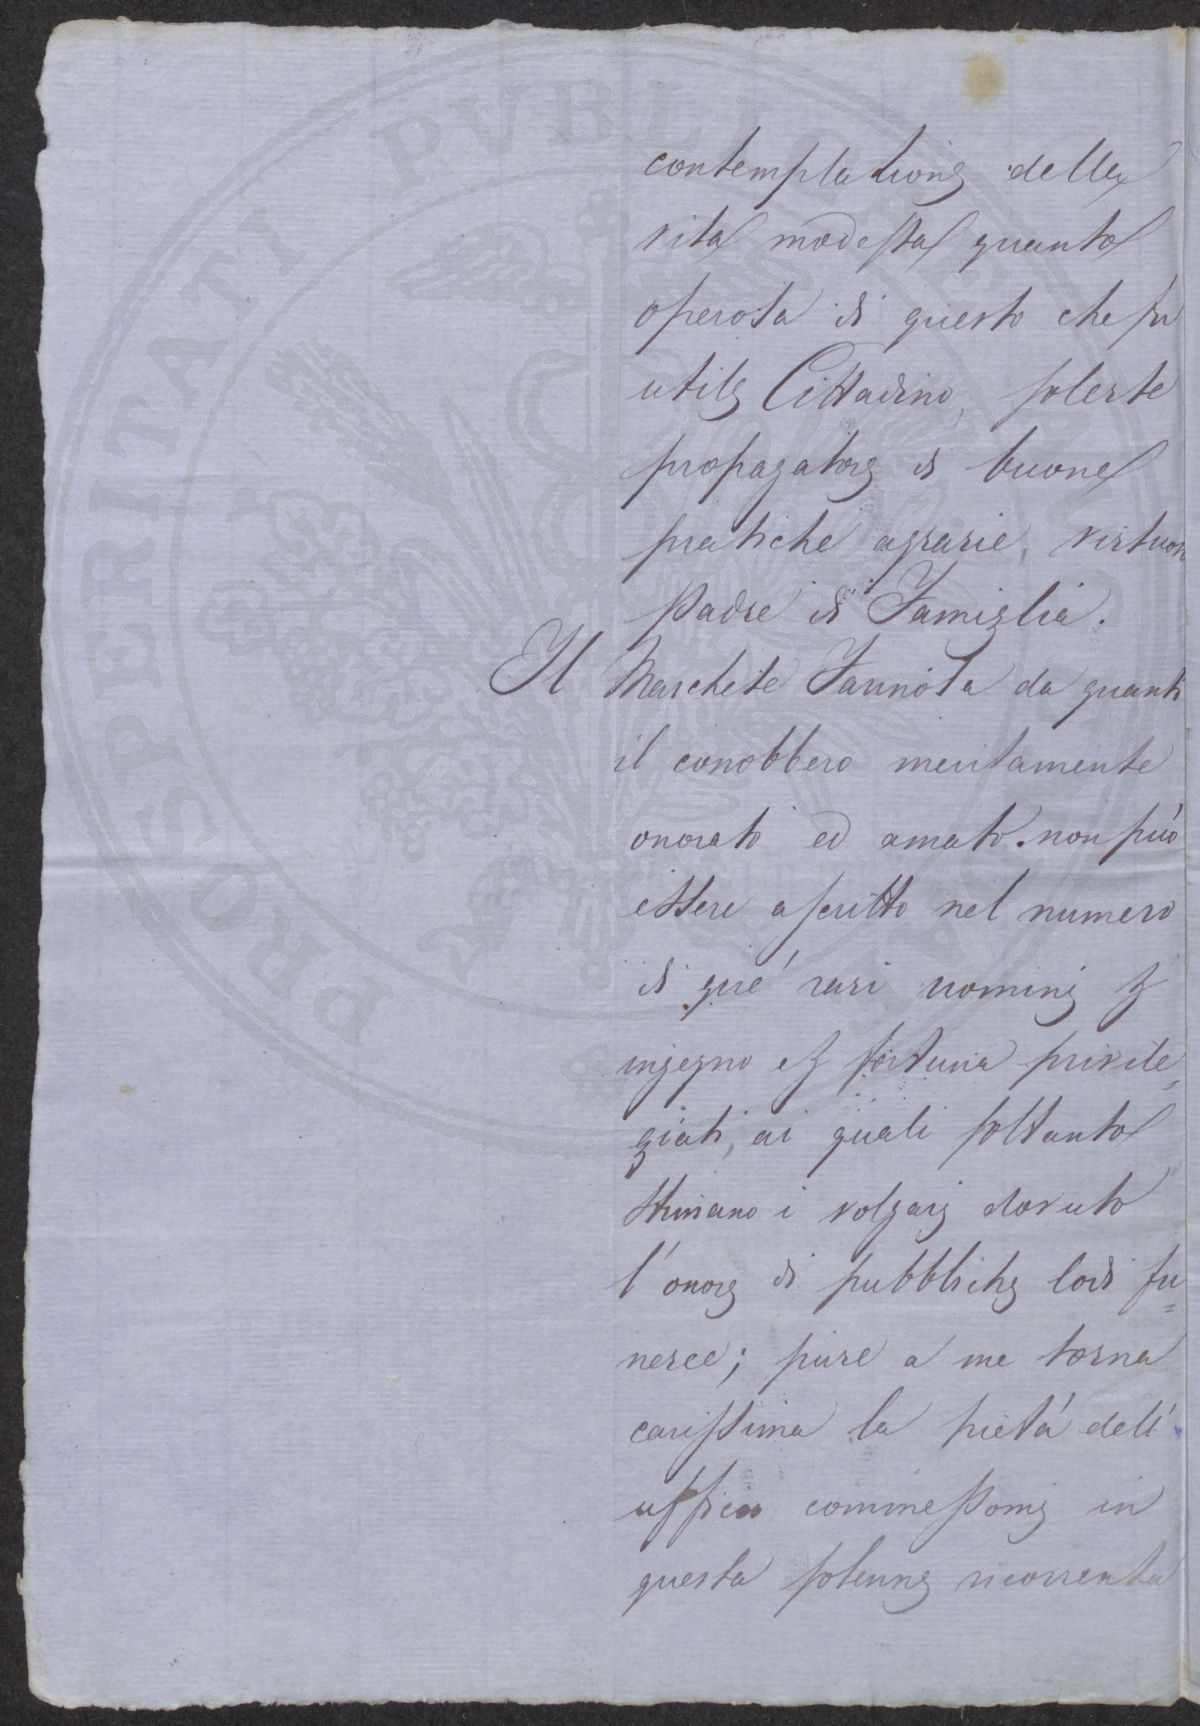 contemplazione della
vita modesta quanto
operosa di questo che fu
utile Cittadino, solerte
propagatore di buone
pratiche agrarie, virtuoso
Padre di Famiglia.
Il Marchese Iannola da quanti
il conobbero meritamente
onorato ed amato. non può
essere ascritto nel numero
di que' rari uomini e
ingegno e fortuna privile=
giati, ai quali soltanto
stimano i volgari dovuto
l'onore di pubbliche lodi fu=
neree; pure a me torna
carissima la pietà dell'
ufficio commessomi in
questa solenne ricorrenza
PROSPERITATI PUBLICAE